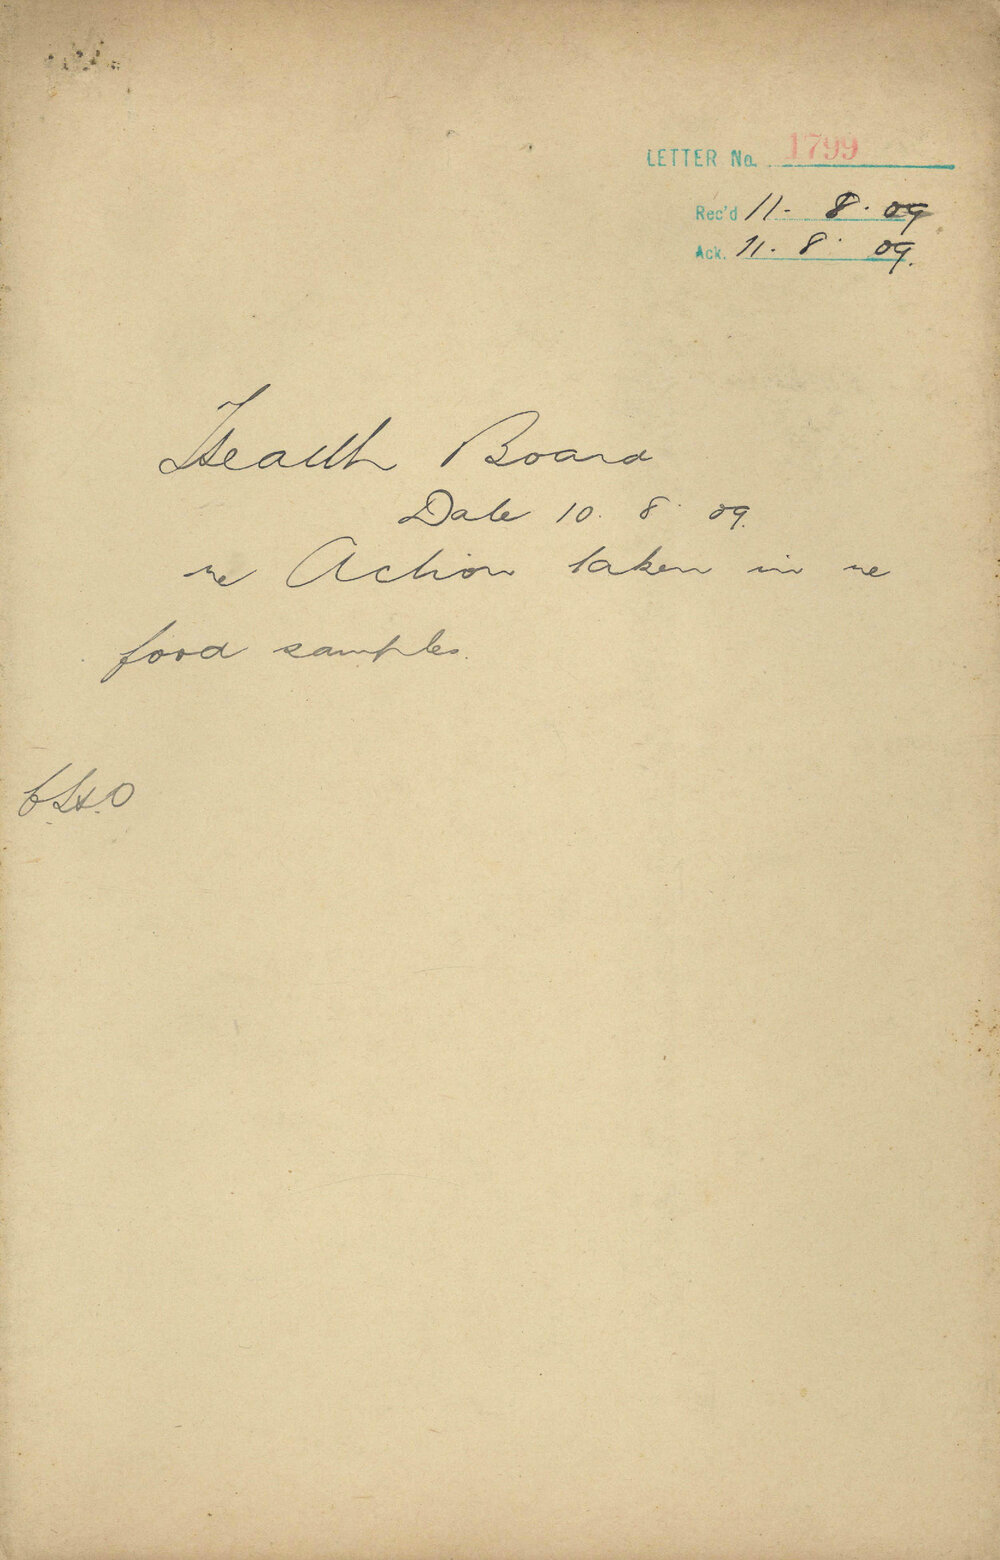 LETTER No. 1799
Rec'd 11. 8. 09
Ack. 11. 8. 09.
Health Board
Date 10. 8. 09.
re Action taken in re
food samples.
C.H.O